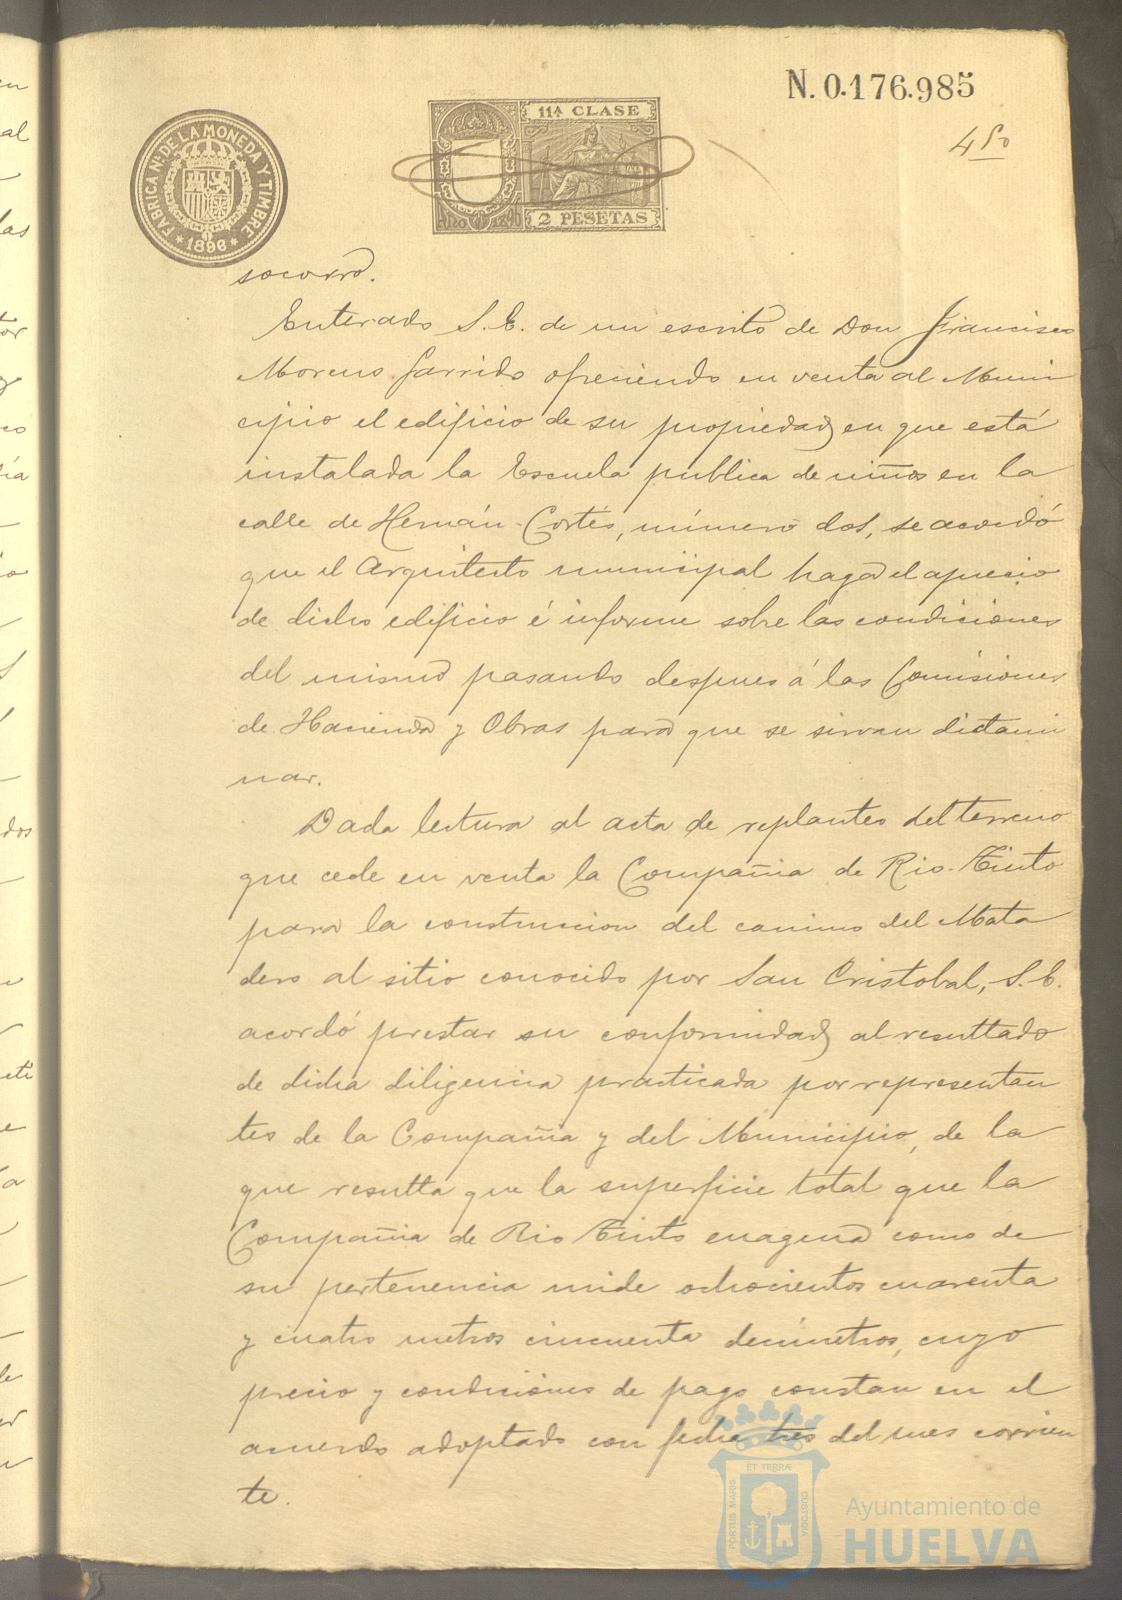 N. 0.176.985
FABRICA NAL DE LA MONEDA Y TIMBRE
* 1896 *
11ª CLASE
2 PESETAS
socorro.
Enterado S. E. de un escrito de Don Francisco
Moreno Garrido ofreciendo en venta al Muni
cipio el edificio de su propiedad en que está
instalada la Escuela publica de niños en la
calle de Hernán-Cortés, número dos, se acordó
que el Arquitecto municipal haga el aprecio
de dicho edificio é informe sobre las condiciones
del mismo pasando despues á las Comisiones
de Hacienda y Obras para que se sirvan dictami
nar.
Dada lectura al acta de replanteo del terreno
que cede en venta la Compañia de Rio-Tinto
para la construccion del camino del Mata
dero al sitio conocido por San Cristobal, S. E.
acordó prestar su conformidad al resultado
de dicha diligencia practicada por representan
tes de la Compañia y del Municipio, de la
que resulta que la superficie total que la
Compañia de Rio Tinto enagena como de
su pertenencia mide ochocientos cuarenta
y cuatro metros cincuenta decimetros, cuyo
precio y condiciones de pago constan en el
acuerdo adoptado con fecha tres del mes corrien
te.
PORTUS MARIS ET TERRÆ CUSTODIA
Ayuntamiento de
HUELVA